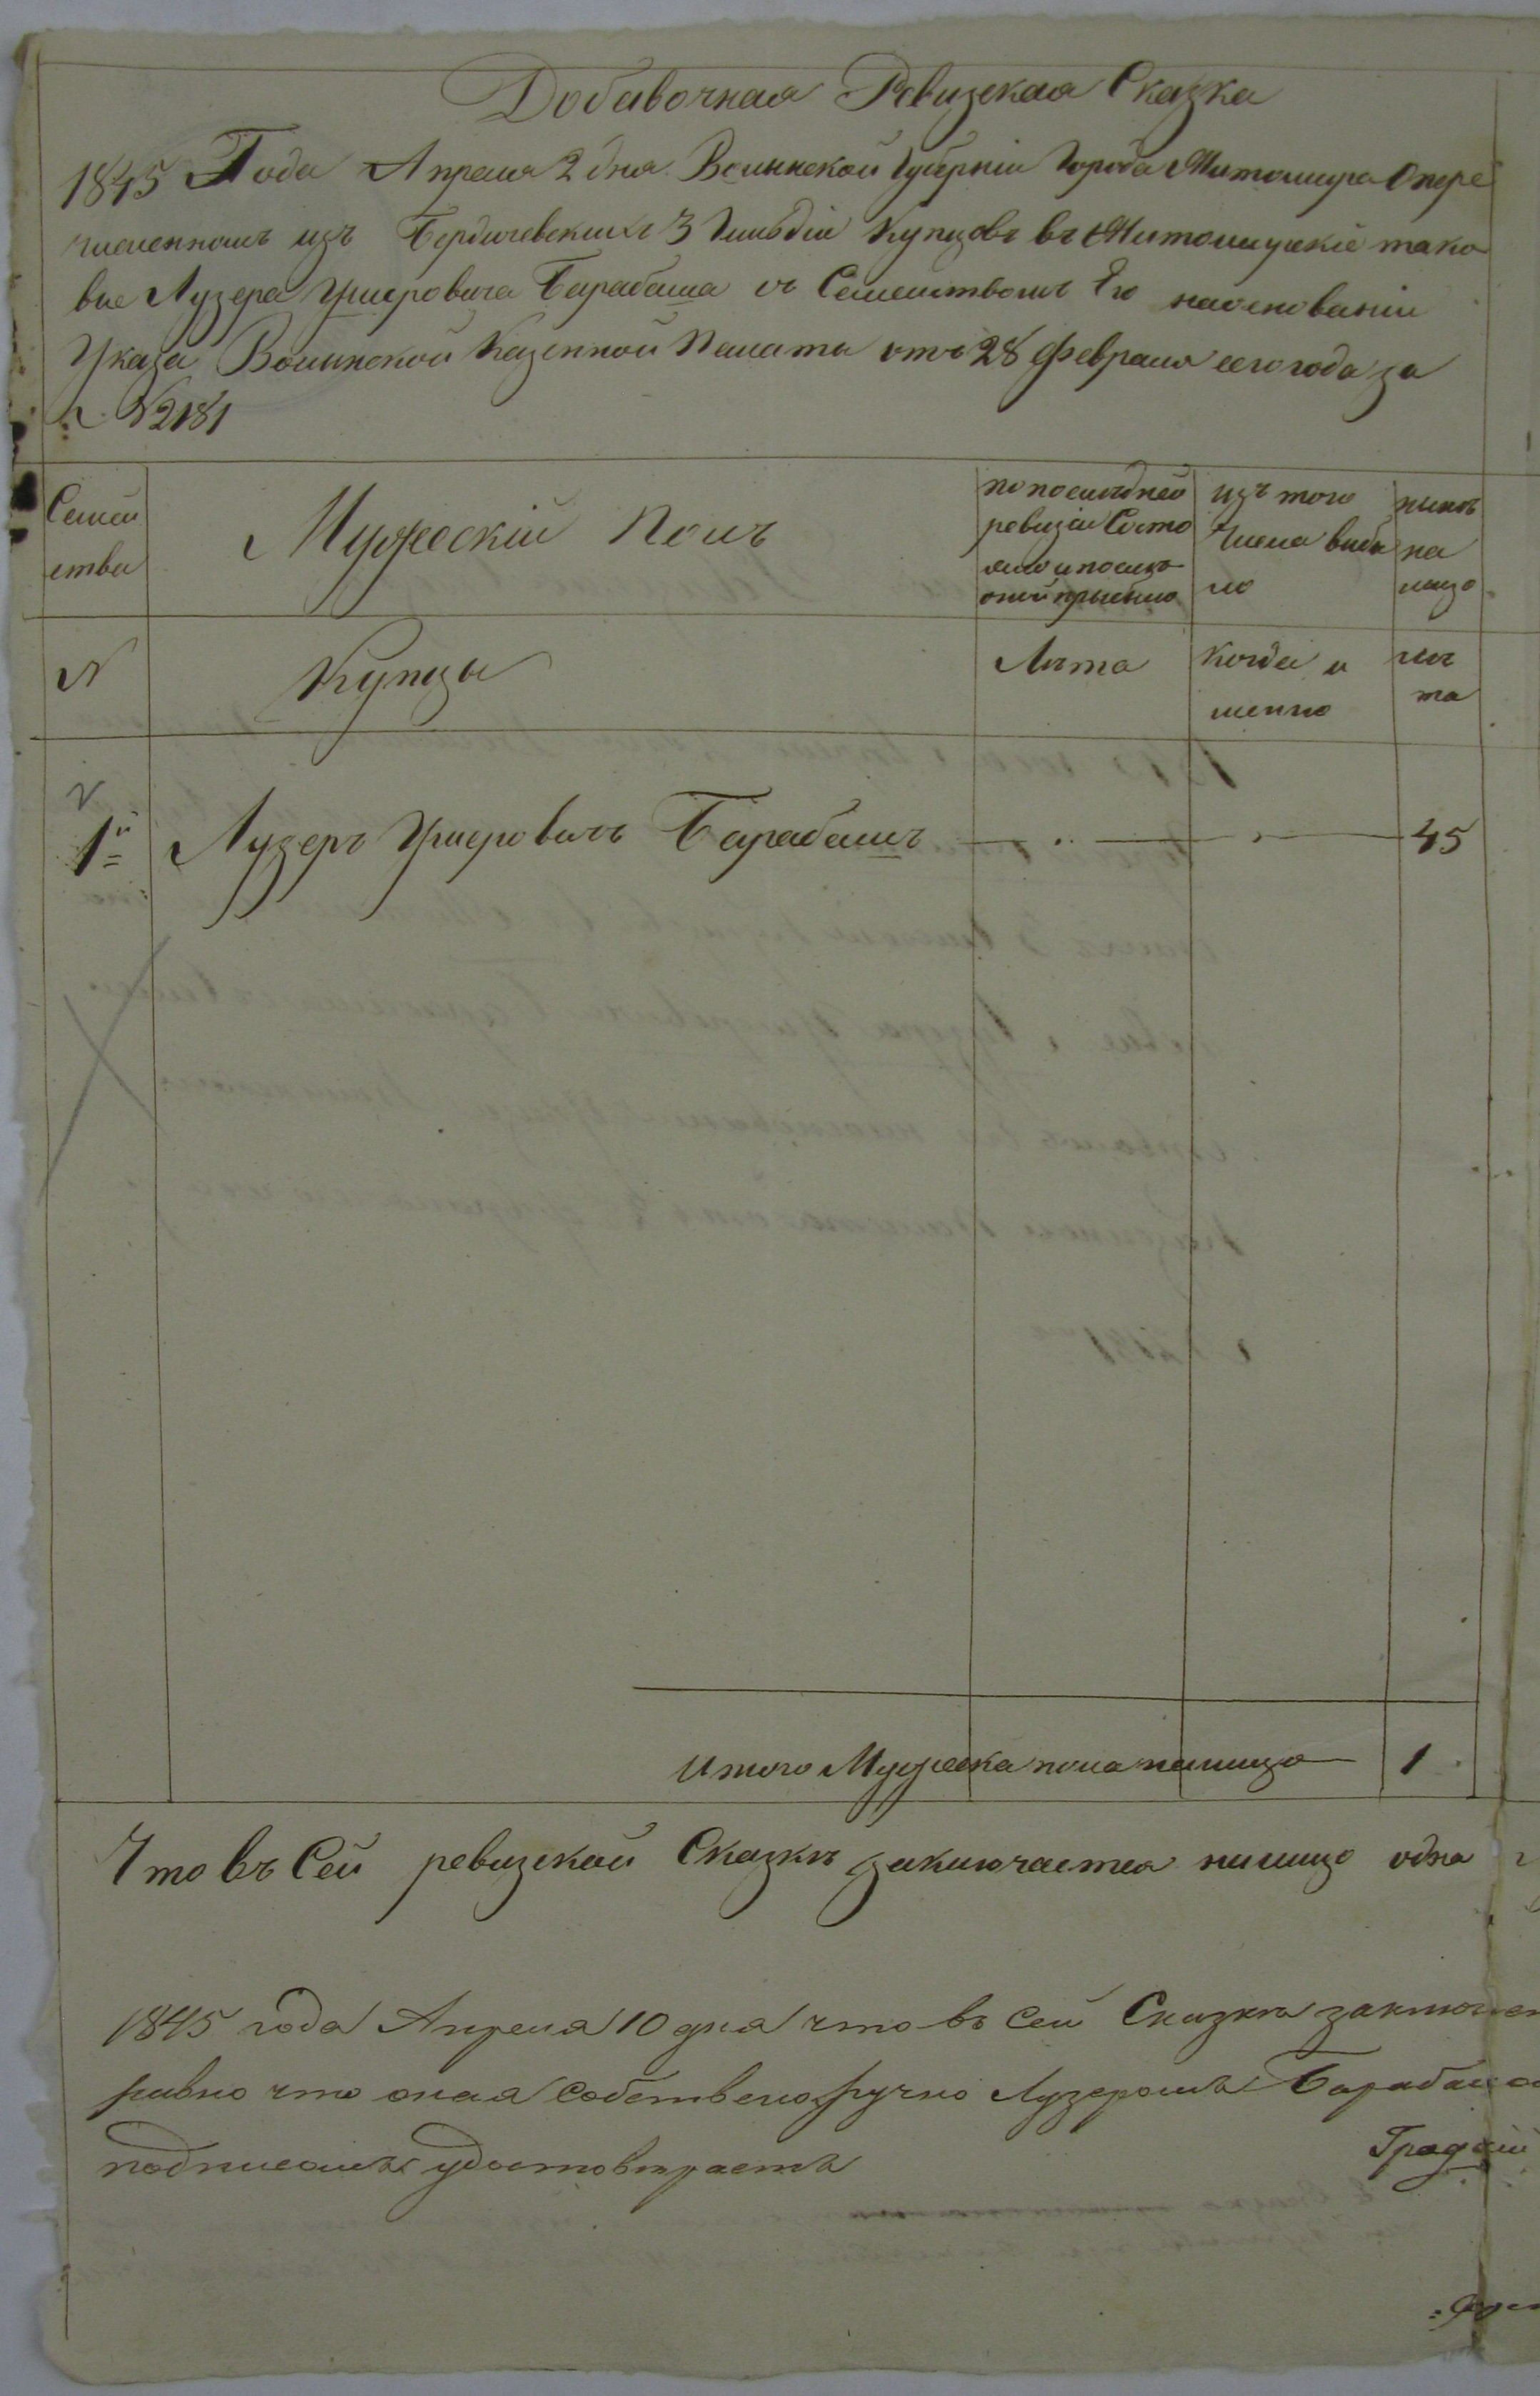 Добавочная Ревизская Сказка
1845 Года Апреля 2 дня Волынской Губерніи Города Житомира Опере
численномъ изъ Бердичевскихъ 3 Гильдіи Купцовъ въ Житомирскіе тако
вые Лузера Умеровича Барабаша съ Семействомъ Его наоснованіи
Указа Волынской Казенной Палаты отъ 28 Февраля сего года за
№ 2181
Семей
ства
Мужескій Полъ
по последней
ревизіи Состо
яло и послѣ
оной прибыло
изъ того
Числа выбы
ло
нынѣ
на
лицо
№
Купцы
Лѣта
Когда и
менно
лѣ
та
1й Лузеръ Умеровичъ Барабашъ 45
Итого Мужеска пола налицо 1
Что въ Сей ревизской Сказкѣ заключается налицо одна
1845 года Апреля 10 дня что въ сей Сказкѣ заключает
равно что оная Собственоручно Лузеромъ Барабашо
подписана удостовѣряетъ
Градскій